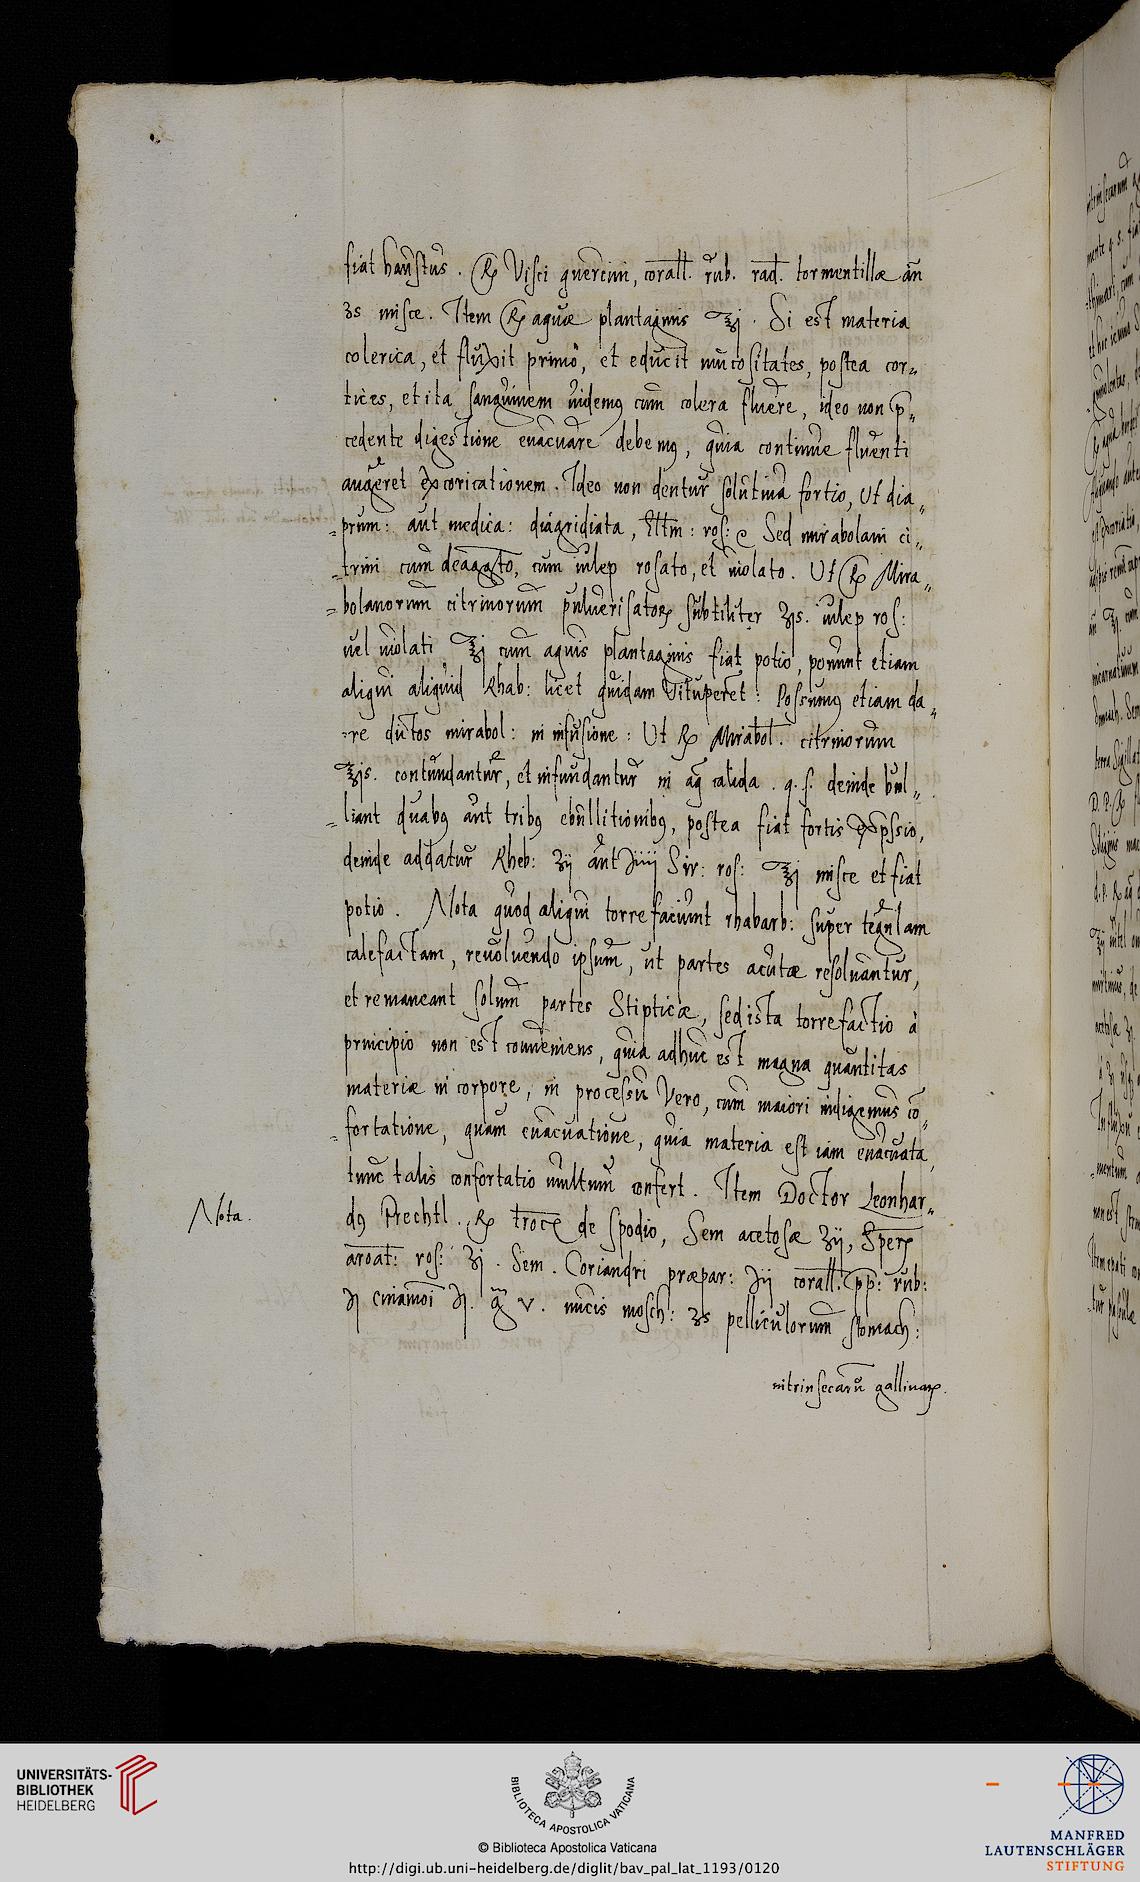 fiat haustus. ℞ Visci quercini, corall. rub. rad. tormentillæ añ
ʒs misce. Item ℞ aquæ plantaginis ℥j. Si est materia
colerica, et fluxit primo, et educit mucositates, postea cor„
tices, et ita sanguinem uidemꝰ cum colera fluere, ideo non p„
cedente digestione euacuare debemꝰ, quia continue fluenti
augeret excoricationem. Ideo non dentur solutiua fortio, Ut dia„
prum: aut medica: diagridiata, Eltm: ros: Sed mirabolani ci„
trini cum, cum iulep rosato, et uiolato. Ut ℞ Mira„
bolanorum citrinorum puluerisatoꝝ subtiliter ʒjs. iulep ros:
uel uiolati ℥j cum aquis plantaginis fiat potio, ponunt etiam
aliqui aliquid Rhab: licet quidam Vituperet: Possumꝰ etiam da„
re dictos mirabol: in infusione: Ut ℞ Mirabol. citrinorum
℥js. contundantur, et infundantur in aq calida. q. s. deinde bul„
liant duabꝰ aut tribꝰ ebullitionibꝰ, postea fiat fortis expssio,
deinde addatur Rheb: ʒij aut ℈iiij Sir: ros: ℥j misce et fiat
potio. Nota quod aliqui torrefaciunt rhabarb: super tegulam
calefactam, reuoluendo ipsum, ut partes acutæ resoluantur,
et remaneant solum partes Stipticæ, sed ista torrefactio à
principio non est conueniens, quia adhuc est magna quantitas
materiæ in corpore, in processu Vero, cum maiori indigemus co„
fortatione, quam euacuatione, quia materia est iam euacuata,
tunc talis confortatio multum confert. Item Doctor Leonhar„
Nota.
dꝰ Prechtl. ℞ troc de spodio, Sem acetosæ ʒij, Sper
aroat: ros: ʒj. Sem. Coriandri præpar: ℈ij corall. pp: rub:
℈j cinamoi ℈j. gͣ v. nucis mosch: ʒs pelliculorum stomach:
intrinsecaru gallinaꝝ.
UNIVERSITÄTS-
BIBLIOTHEK
HEIDELBERG
BIBLIOTECA APOSTOLICA VATICANA
© Biblioteca Apostolica Vaticana
http://digi.ub.uni-heidelberg.de/diglit/bav_pal_lat_1193/0120
MANFRED
LAUTENSCHLÄGER
STIFTUNG